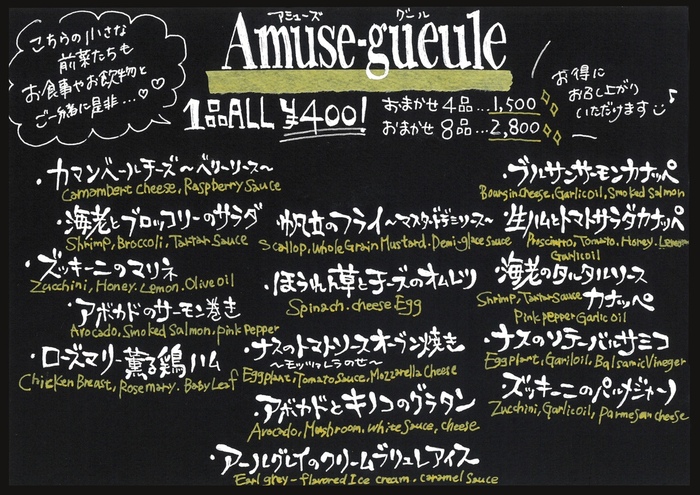 こちらの小さな
前菜たちも
お食事やお飲物と
ご一緒に是非…♡♡
アミューズ グール
Amuse-gueule
1品ALL ¥400!
おまかせ 4品…1,500
おまかせ 8品…2,800
お得に
お召し上がり
いただけます♪
・カマンベールチーズ〜ベリーソース〜
Camambert cheese, Raspberry Sauce
・海老とブロッコリーのサラダ
Shrimp, Broccoli, Tartan Sauce
・ズッキーニのマリネ
Zucchini, Honey, Lemon, Olive oil
・アボカドのサーモン巻き
Avocado, Smoked Salmon, pink Pepper
・ローズマリー薫る鶏ハム
Chicken Breast, Rosemary, Baby Leaf
・帆立のフライ〜マスタードデミソース〜
Scallop, Whole Grain Mustard, Demi-glace Sauce
・ほうれん草とチーズのオムレツ
Spinach, cheese, Egg
・ナスのトマトソースオーブン焼き
〜モッツァレラのせ〜
Eggplant, Tomato Sauce, Mozzarella Cheese
・アボカドとキノコのグラタン
Avocado, Mushroom, White Sauce, cheese
・ブルサンサーモンカナッペ
Boursin Cheese, Garlic oil, Smoked Salmon
・生ハムとトマトサラダカナッペ
Prosciutto, Tomato, Honey, Lemon
Garlic oil
・海老のタルタルソース
カナッペ
Shrimp, Tartar Sauce
Pink pepper Garlic oil
・ナスのソテーバルサミコ
Eggplant, Garlil oil, Balsamic Vineger
・ズッキーニのパルメジャーノ
Zucchini, Garlic oil, parmesan cheese
・アールグレイのクリームブリュレアイス
Earl grey-flavored Ice cream, caramel Sauce